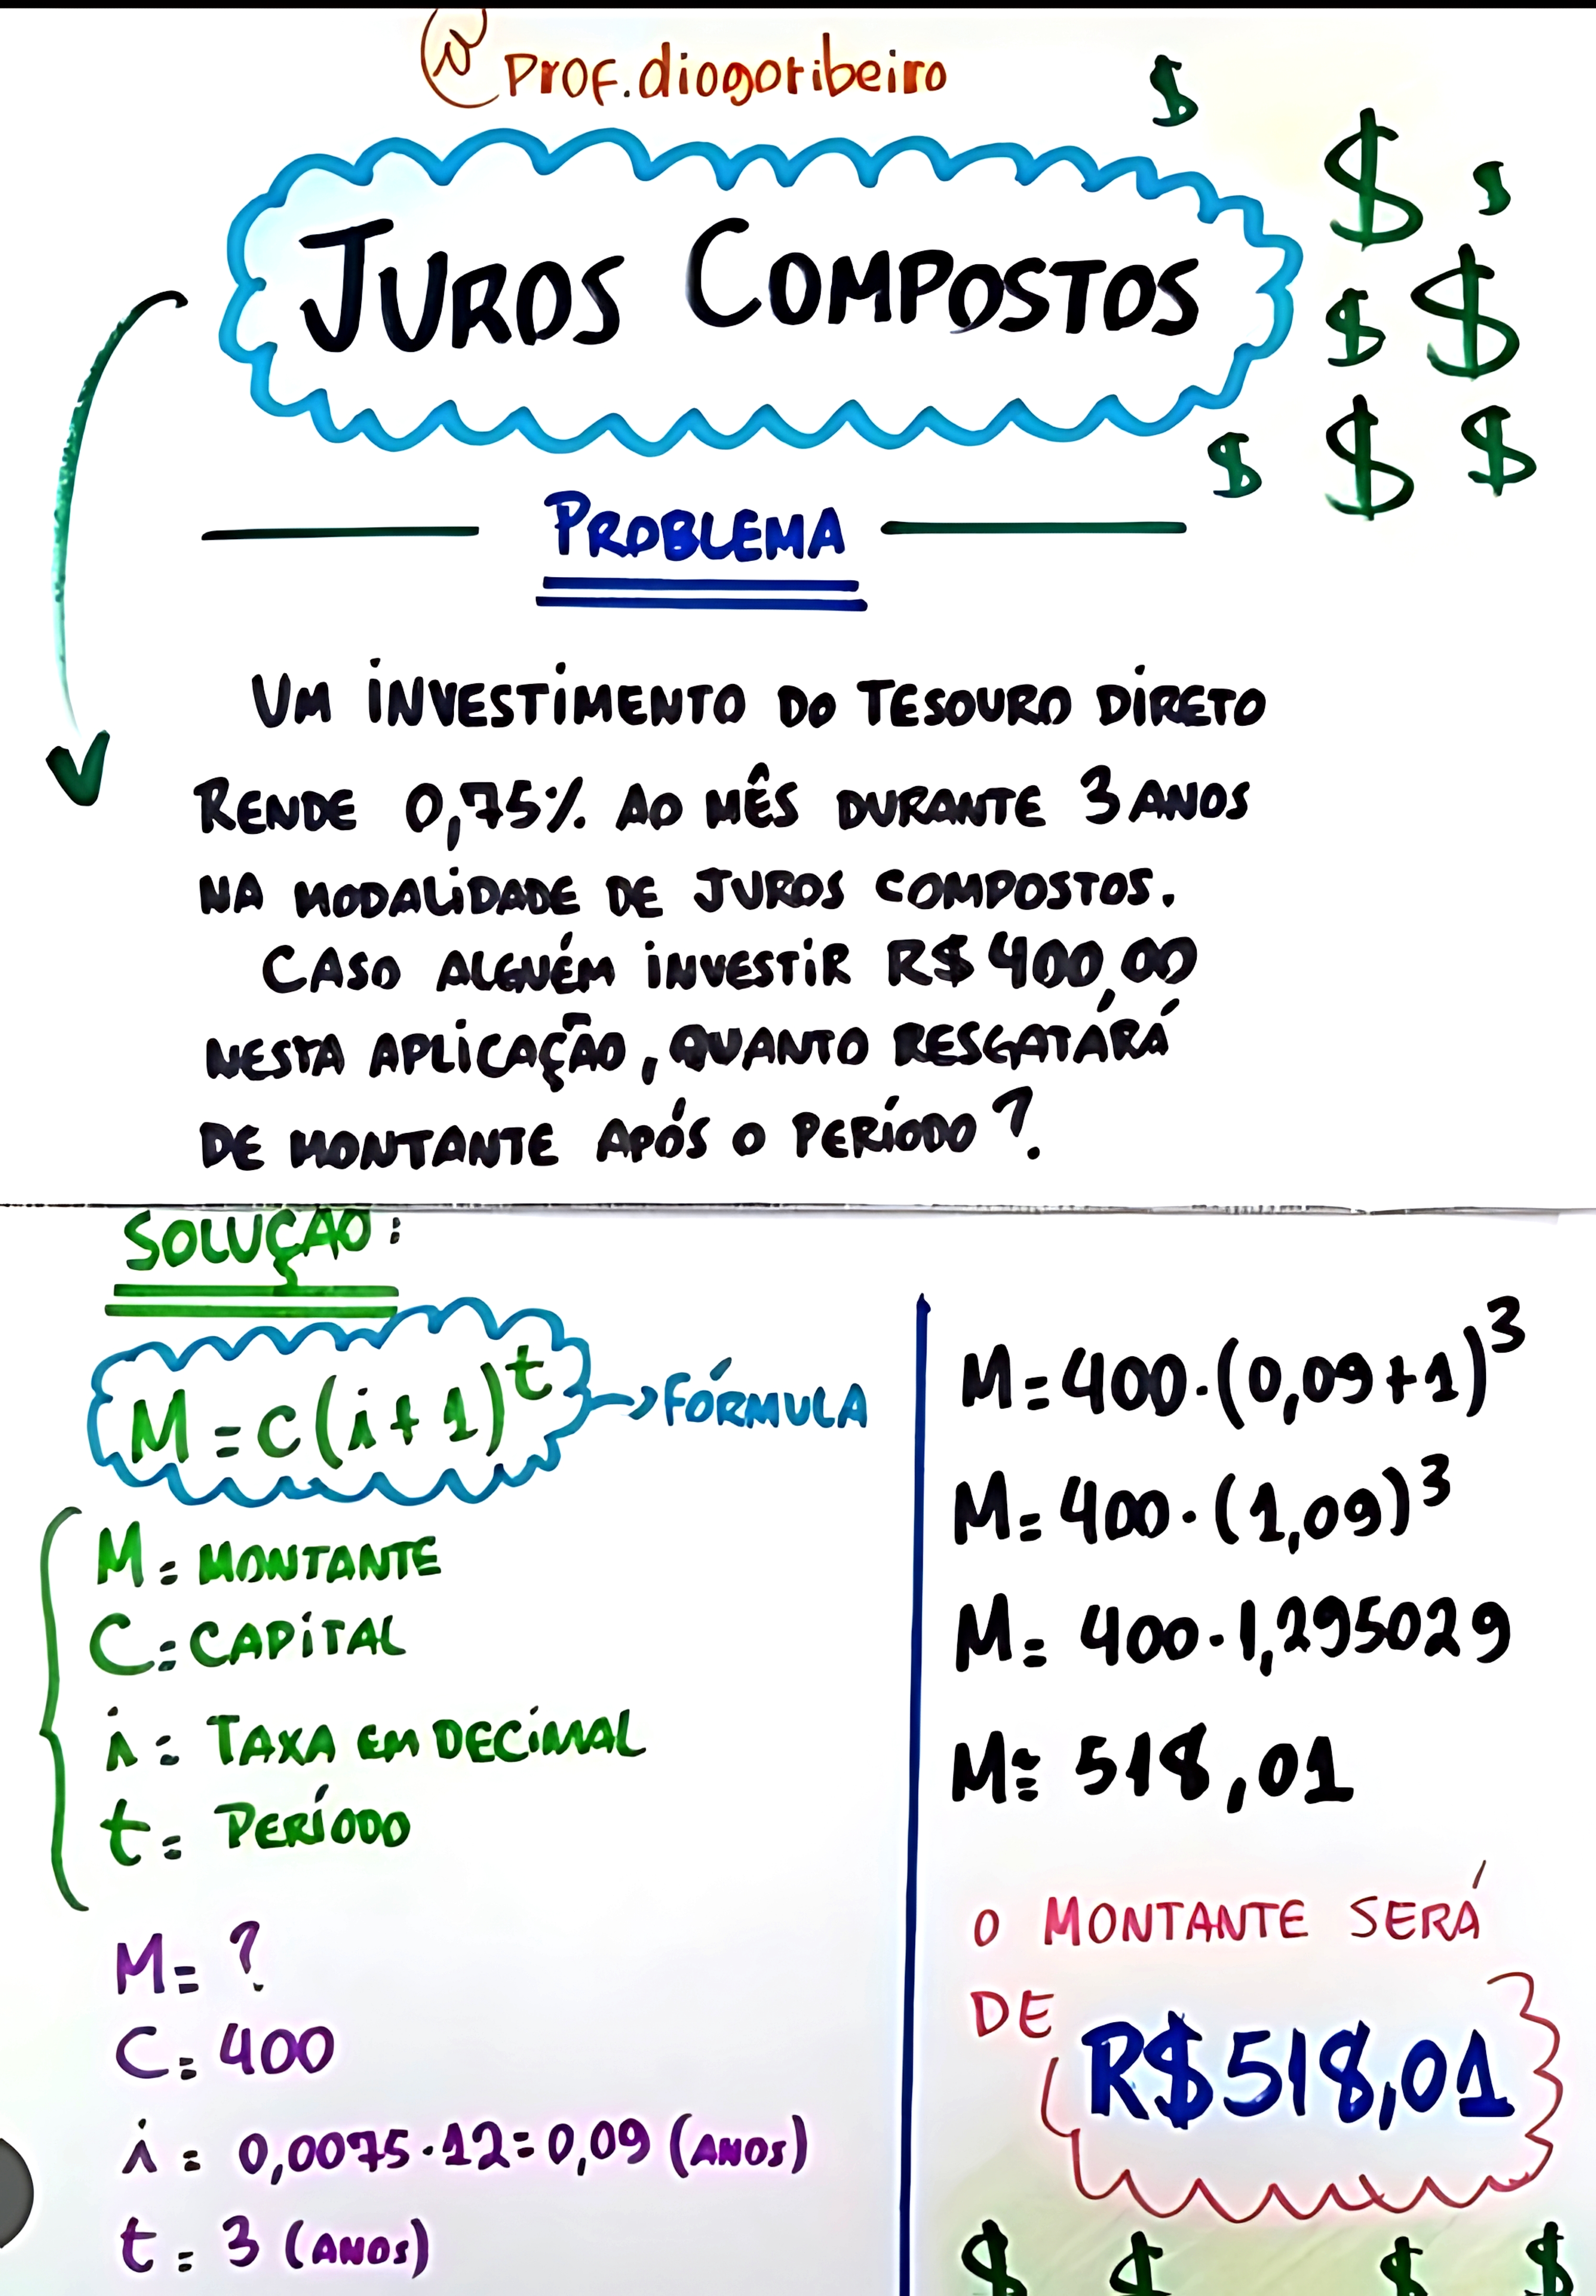 @Prof.diogoribeiro
JUROS COMPOSTOS
PROBLEMA
UM INVESTIMENTO DO TESOURO DIRETO
RENDE 0,75% AO MÊS DURANTE 3 ANOS
NA MODALIDADE DE JUROS COMPOSTOS.
CASO ALGUÉM INVESTIR R$ 400,00
NESTA APLICAÇÃO, QUANTO RESGATÁRÁ
DE MONTANTE APÓS O PERÍODO?
SOLUÇÃO:
M = C(i+1)^t → FÓRMULA
M = MONTANTE
C = CAPITAL
i = TAXA EM DECIMAL
t = PERÍODO
M = ?
C = 400
i = 0,0075 · 12 = 0,09 (ANOS)
t = 3 (ANOS)
M = 400 · (0,09+1)^3
M = 400 · (1,09)^3
M = 400 · 1,295029
M ≅ 518,01
O MONTANTE SERÁ
DE R$ 518,01